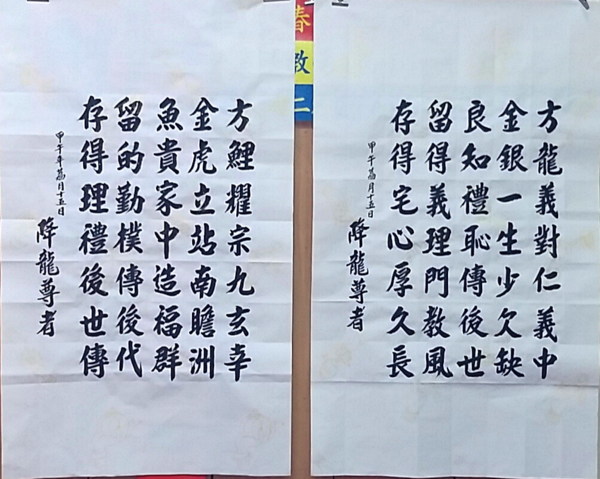 方龍義對仁義中
金銀一生少欠缺
良知禮恥傳後世
留得義理門教風
存得宅心厚久長
甲午月十五日
降龍尊者
春教二
方鯉耀宗九玄幸
金虎立站南瞻洲
魚貴家中造福群
留的勤樸傳後代
存得理禮後世傳
甲午年月十五日
降龍尊者